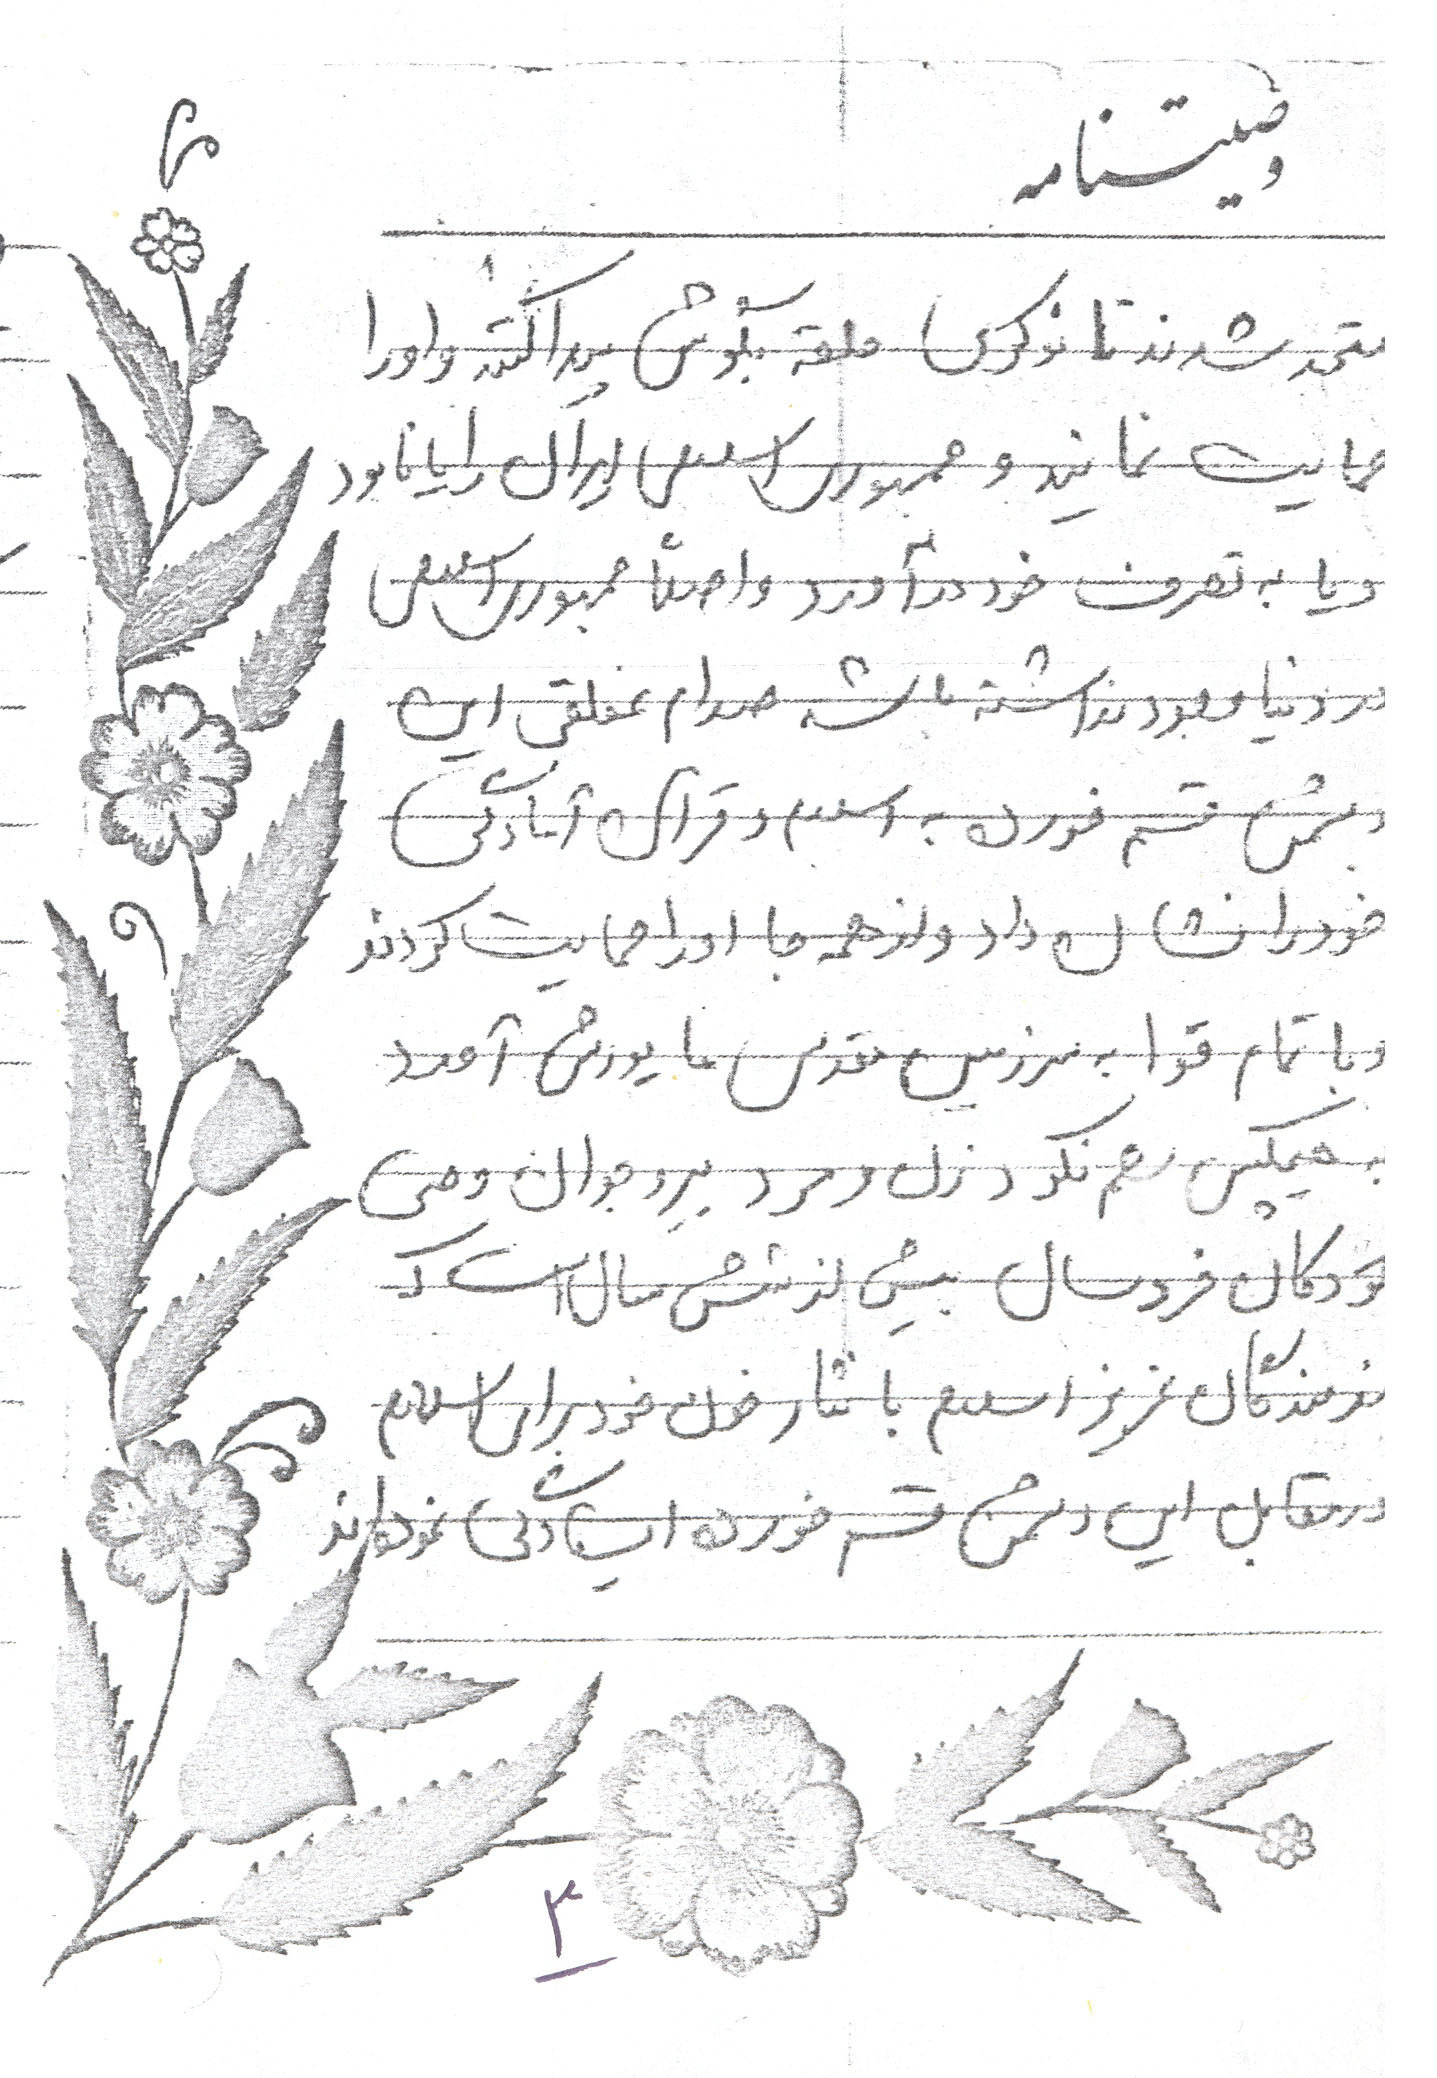 وصیتنامه
متحد شدند تا نوکری حلقه بگوش پیدا کنند و اورا
حمایت نمایند و جمهوری اسلامی ایران را یا نابود
و یا به تصرف خود در آورد و اصلاً جمهوری اسلامی
در دنیا وجود نداشته باشد صدام عفلقی این
دشمن قسم خورده به اسلام و قرآن آمادگی
خود را نشان داد و از همه جا اورا حمایت کردند
و با تمام قوا به سرزمین مقدس ما یورش آورد
به هیچکس رحم نکرد زن و مرد پیر و جوان و حتی
کودکان خردسال بیش از شش سال است که
رزمندگان عزیز اسلام با نثار خون خود برای اسلام
در مقابل این دشمن قسم خورده ایستادگی نموده اند
۳